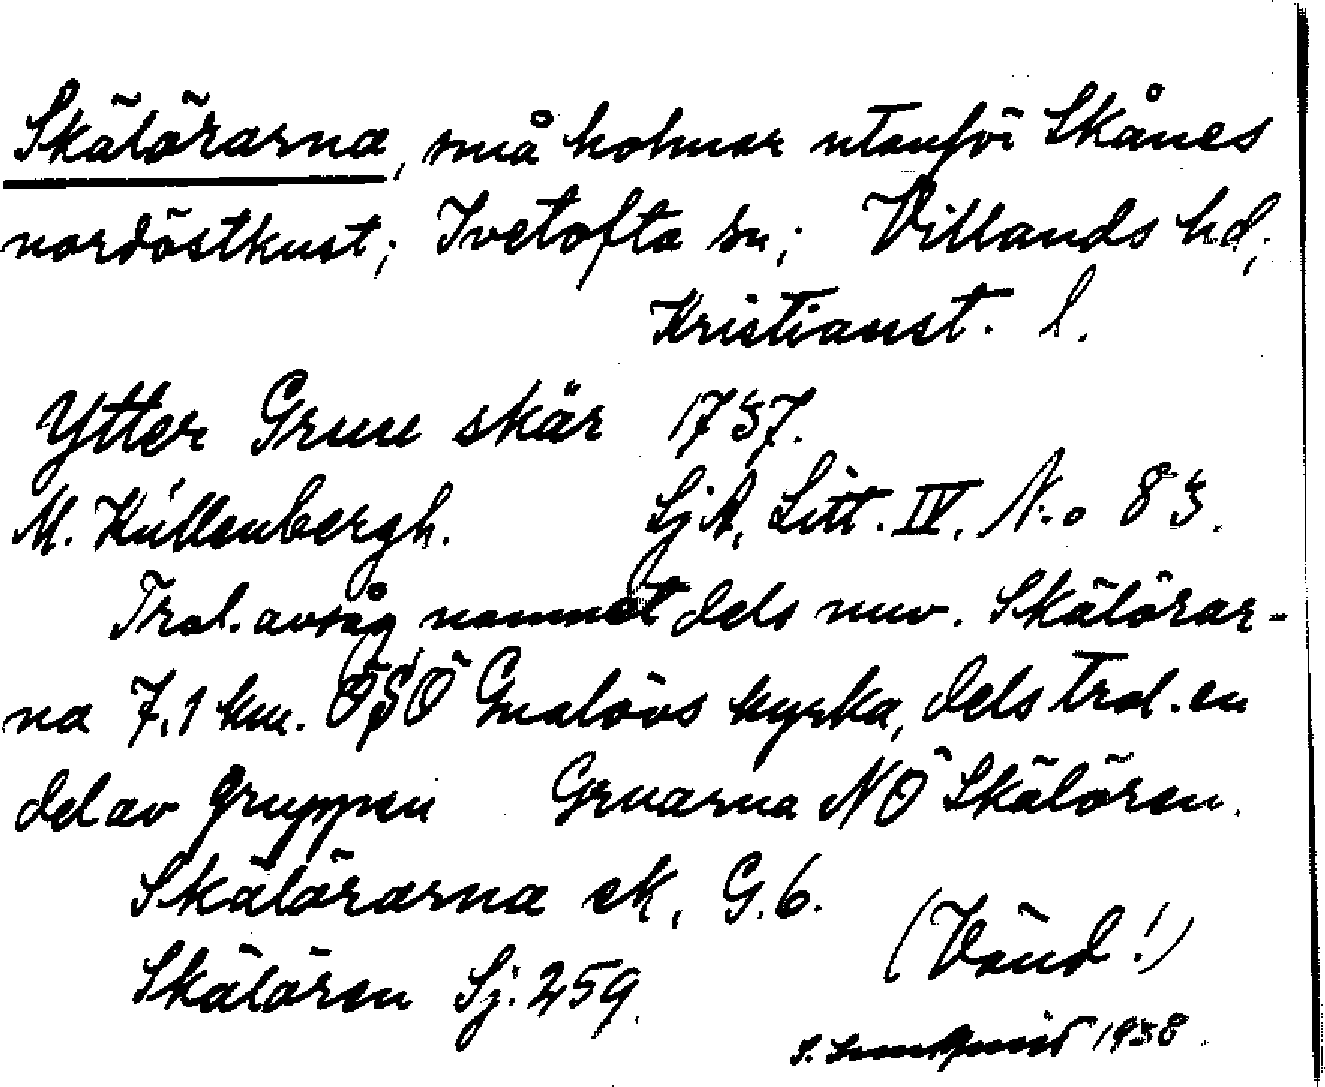 Skälörarna, små holmar utanför Skånes
nordöstkust; Ivetofta sn; Villands hd;
Kristianst. l.
Ytter Gruu skär 1737.
M. Kúllenbergh. SjA, Litt. IV. No 83.
Trol. avsåg namnet dels nuv. Skälörar-
na 7,1 km. OSO Gualövs kyrka, dels trol. en
del av gruppen Gruarna NO Skälören.
Skälörarna ek. G.6.
(Vänd!)
Skälören Sj. 259.
1938.